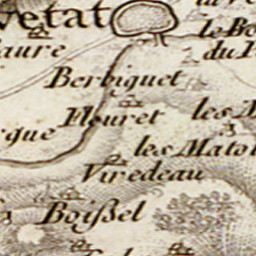 vetat
le Bo
du P
aure
Berbiguet
Fleuret
les M
gue
les Mato
Viredeau
Boißel